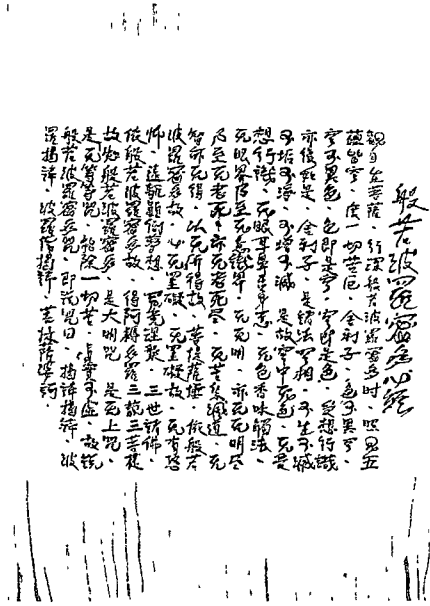 般若波罗蜜多心经
觀自在菩薩、行深般若波羅蜜多时、照見五
蕴皆空、度一切苦厄、舍利子、色不異空、
空不異色、色即是空、空即是色、受想行識
亦復如是、舍利子、是諸法空相、不生不滅
不垢不净、不增不减、是故空中无色、无受
想行識、无眼耳鼻舌身意、无色香味觸法、
无眼界乃至无意識界、无无明、亦无无明尽
乃至无老死、亦无老死尽、无苦集滅道、无
智亦无得、以无所得故、菩提薩埵、依般若
波羅蜜多故、心无罣礙、无罣礙故、无有恐
怖、遠離顛倒夢想、究竟涅槃、三世諸佛、
依般若波羅蜜多故、得阿耨多羅三藐三菩提
故知般若波羅蜜多、是大明咒、是无上咒、
是无等等咒、能除一切苦、真實不虛、故説
般若波羅蜜多咒、即説咒曰、揭諦揭諦、波
羅揭諦、波羅僧揭諦、菩提薩婆訶、